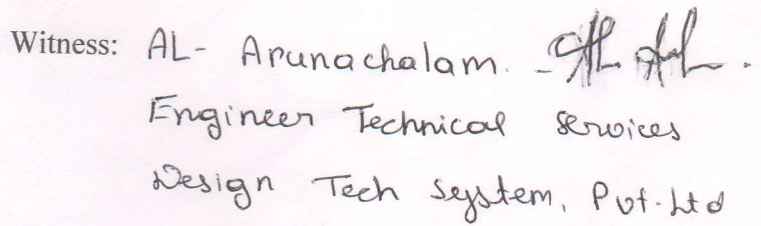 Witness: AL- Arunachalam. -
Engineer Technical Services
Design Tech System, Pvt. Ltd